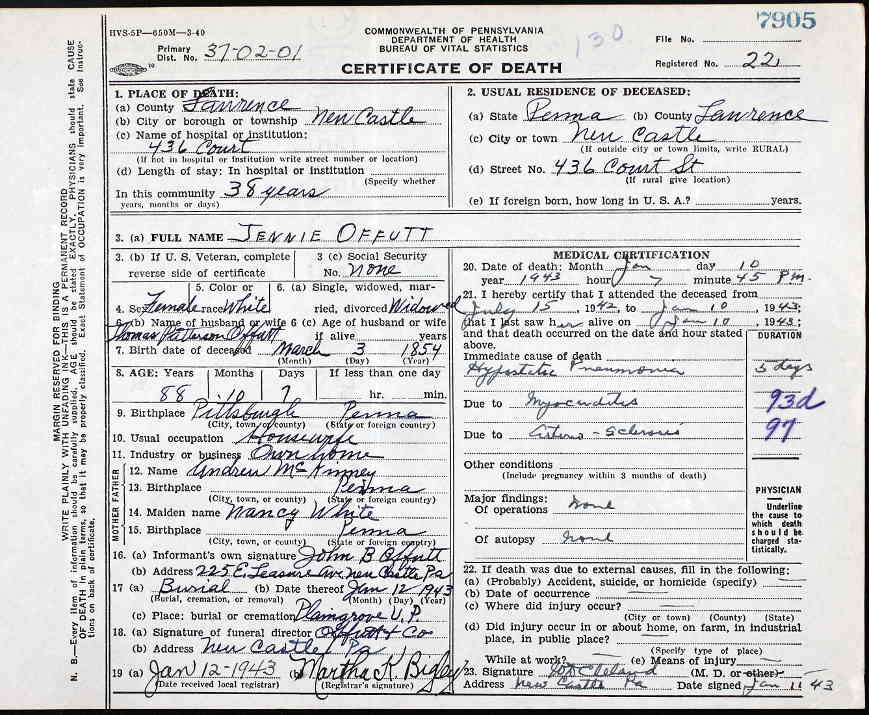 7905
HVS-5P—650M—3-40
COMMONWEALTH OF PENNSYLVANIA
DEPARTMENT OF HEALTH
BUREAU OF VITAL STATISTICS
130
Primary
Dist. No. 37-02-01
File No.
CERTIFICATE OF DEATH
Registered No. 22
MARGIN RESERVED FOR BINDING
WRITE PLAINLY WITH UNFADING INK—THIS IS A PERMANENT RECORD
N. B.—Every item of information should be carefully supplied. AGE should be stated EXACTLY. PHYSICIANS should state CAUSE
OF DEATH in plain terms, so that it may be properly classified. Exact Statement of OCCUPATION is very important. See Instruc-
tions on back of certificate.
1. PLACE OF DEATH:
(a) County Lawrence
(b) City or borough or township New Castle
(c) Name of hospital or institution:
436 Court
(If not in hospital or institution write street number or location)
(d) Length of stay: In hospital or institution
(Specify whether
In this community 38 years
years, months or days)
2. USUAL RESIDENCE OF DECEASED:
(a) State Penna (b) County Lawrence
(c) City or town New Castle
(If outside city or town limits, write RURAL)
(d) Street No. 436 Court St
(If rural give location)
(e) If foreign born, how long in U. S. A.? years.
3. (a) FULL NAME JENNIE OFFUTT
3. (b) If U. S. Veteran, complete
reverse side of certificate
3 (c) Social Security
No. none
4. Sex Female
5. Color or
race White
6. (a) Single, widowed, mar-
ried, divorced Widowed
6 (b) Name of husband or wife
Thomas Patterson Offutt
6 (c) Age of husband or wife
if alive years
7. Birth date of deceased March 3 1854
(Month) (Day) (Year)
8. AGE: Years Months Days If less than one day
88 10 7 hr. min.
9. Birthplace Pittsburgh Penna
(City, town, or county) (State or foreign country)
10. Usual occupation Housewife
11. Industry or business Own home
FATHER
12. Name Andrew McKinney
13. Birthplace Penna
(City, town, or county) (State or foreign country)
MOTHER
14. Maiden name Nancy White
15. Birthplace Penna
(City, town, or county) (State or foreign country)
16. (a) Informant's own signature John B Offutt
(b) Address 225 E. Leasure Ave New Castle Pa
17 (a) Burial (b) Date thereof Jan 12 1943
(Burial, cremation, or removal) (Month) (Day) (Year)
(c) Place: burial or cremation Plaingrove U.P.
18. (a) Signature of funeral director Offutt & Co
(b) Address New Castle Pa
19 (a) Jan 12-1943 (b) Martha K. Bigley
(Date received local registrar) (Registrar's signature)
MEDICAL CERTIFICATION
20. Date of death: Month Jan day 10
year 1943 hour 7 minute 45 P m.
21. I hereby certify that I attended the deceased from
July 15, 1942, to Jan 10, 1943;
that I last saw her alive on Jan 10, 1943;
and that death occurred on the date and hour stated
above.
DURATION
Immediate cause of death
Hypostatic Pneumonia 5 days
Due to Myocarditis 93d
Due to Arterio-Sclerosis 97
Other conditions
(Include pregnancy within 3 months of death)
Major findings:
Of operations none
Of autopsy none
PHYSICIAN
Underline
the cause to
which death
should be
charged sta-
tistically.
22. If death was due to external causes, fill in the following:
(a) (Probably) Accident, suicide, or homicide (specify)
(b) Date of occurrence
(c) Where did injury occur?
(City or town) (County) (State)
(d) Did injury occur in or about home, on farm, in industrial
place, in public place?
(Specify type of place)
While at work? (e) Means of injury
23. Signature Cleland (M. D. or other)
Address New Castle Pa Date signed Jan 11 43